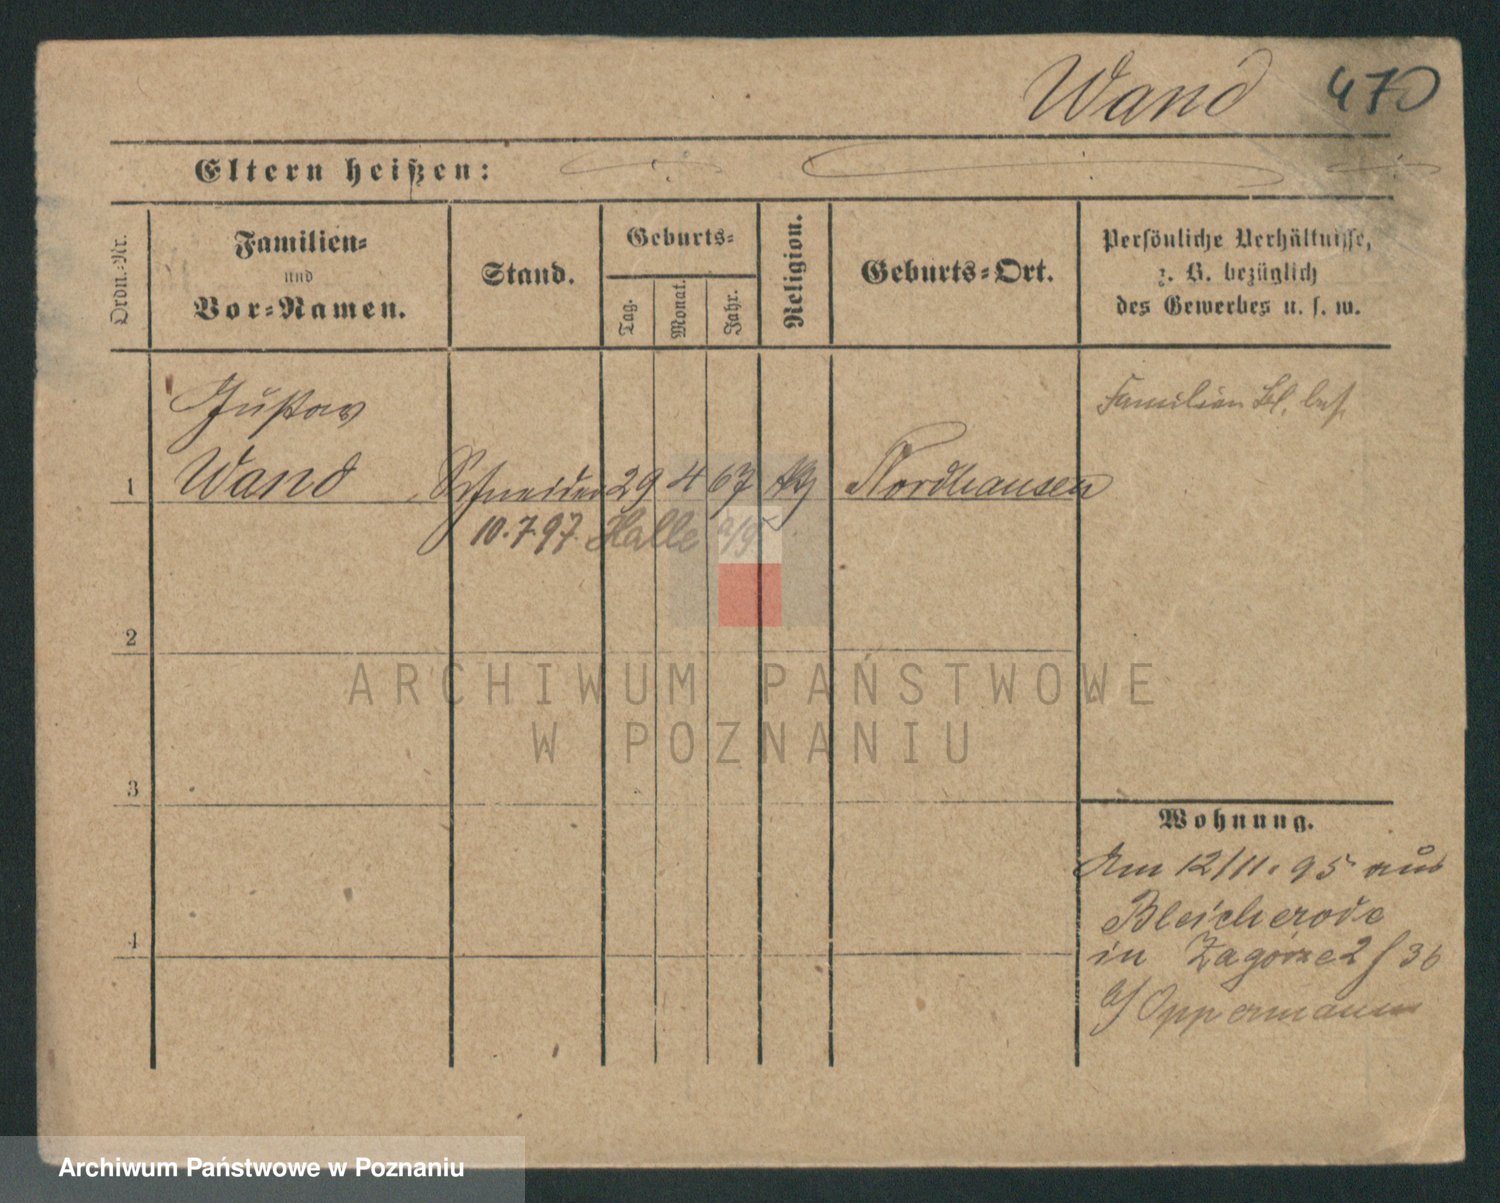 Wand 470
Eltern heißen:
Ordn.-Nr.
Familien-
und
Vor-Namen.
Stand.
Geburts-
Tag.
Monat.
Jahr.
Religion.
Geburts-Ort.
Persönliche Verhältnisse,
z. B. bezüglich
des Gewerbes u. s. w.
Gustav
Familien Bl. bes.
1 Wand Schneider 29 4 67 Nordhausen
10.7.97 Halle a/S
2
3
4
Wohnung.
Am 12/11. 95 aus
Bleicherode
in Zagórze 2 f 36
b/ Oppermann
ARCHIWUM PAŃSTWOWE
W POZNANIU
Archiwum Państwowe w Poznaniu